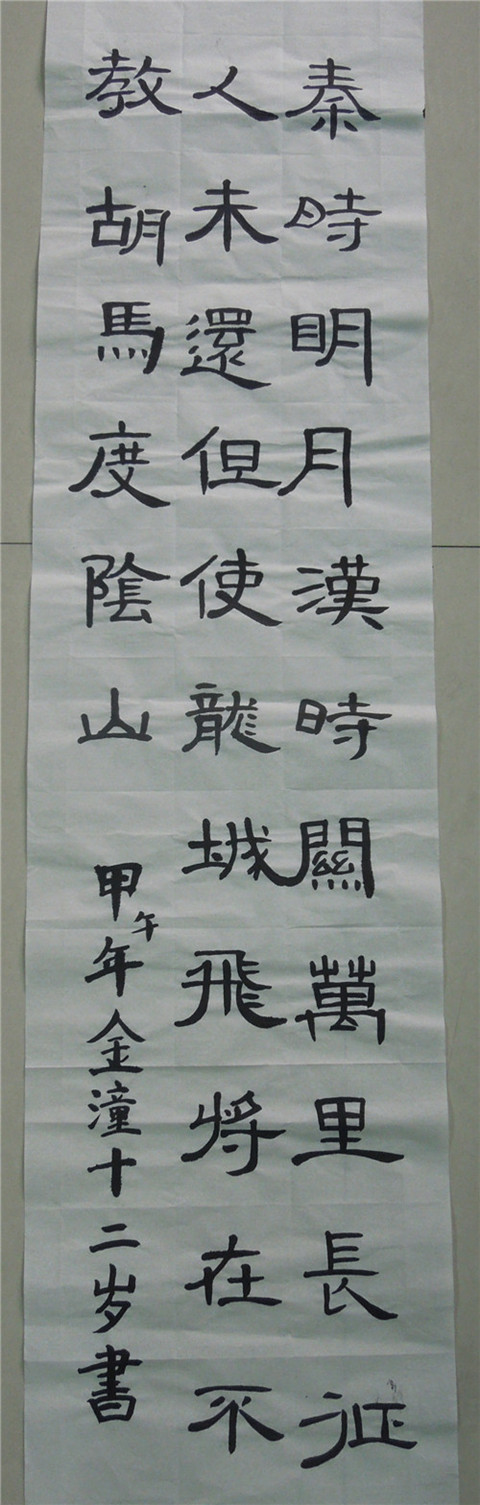 秦時明月漢時關萬里長征
人未還但使龍城飛将在不
教胡馬度陰山
甲午年金潼十二岁書